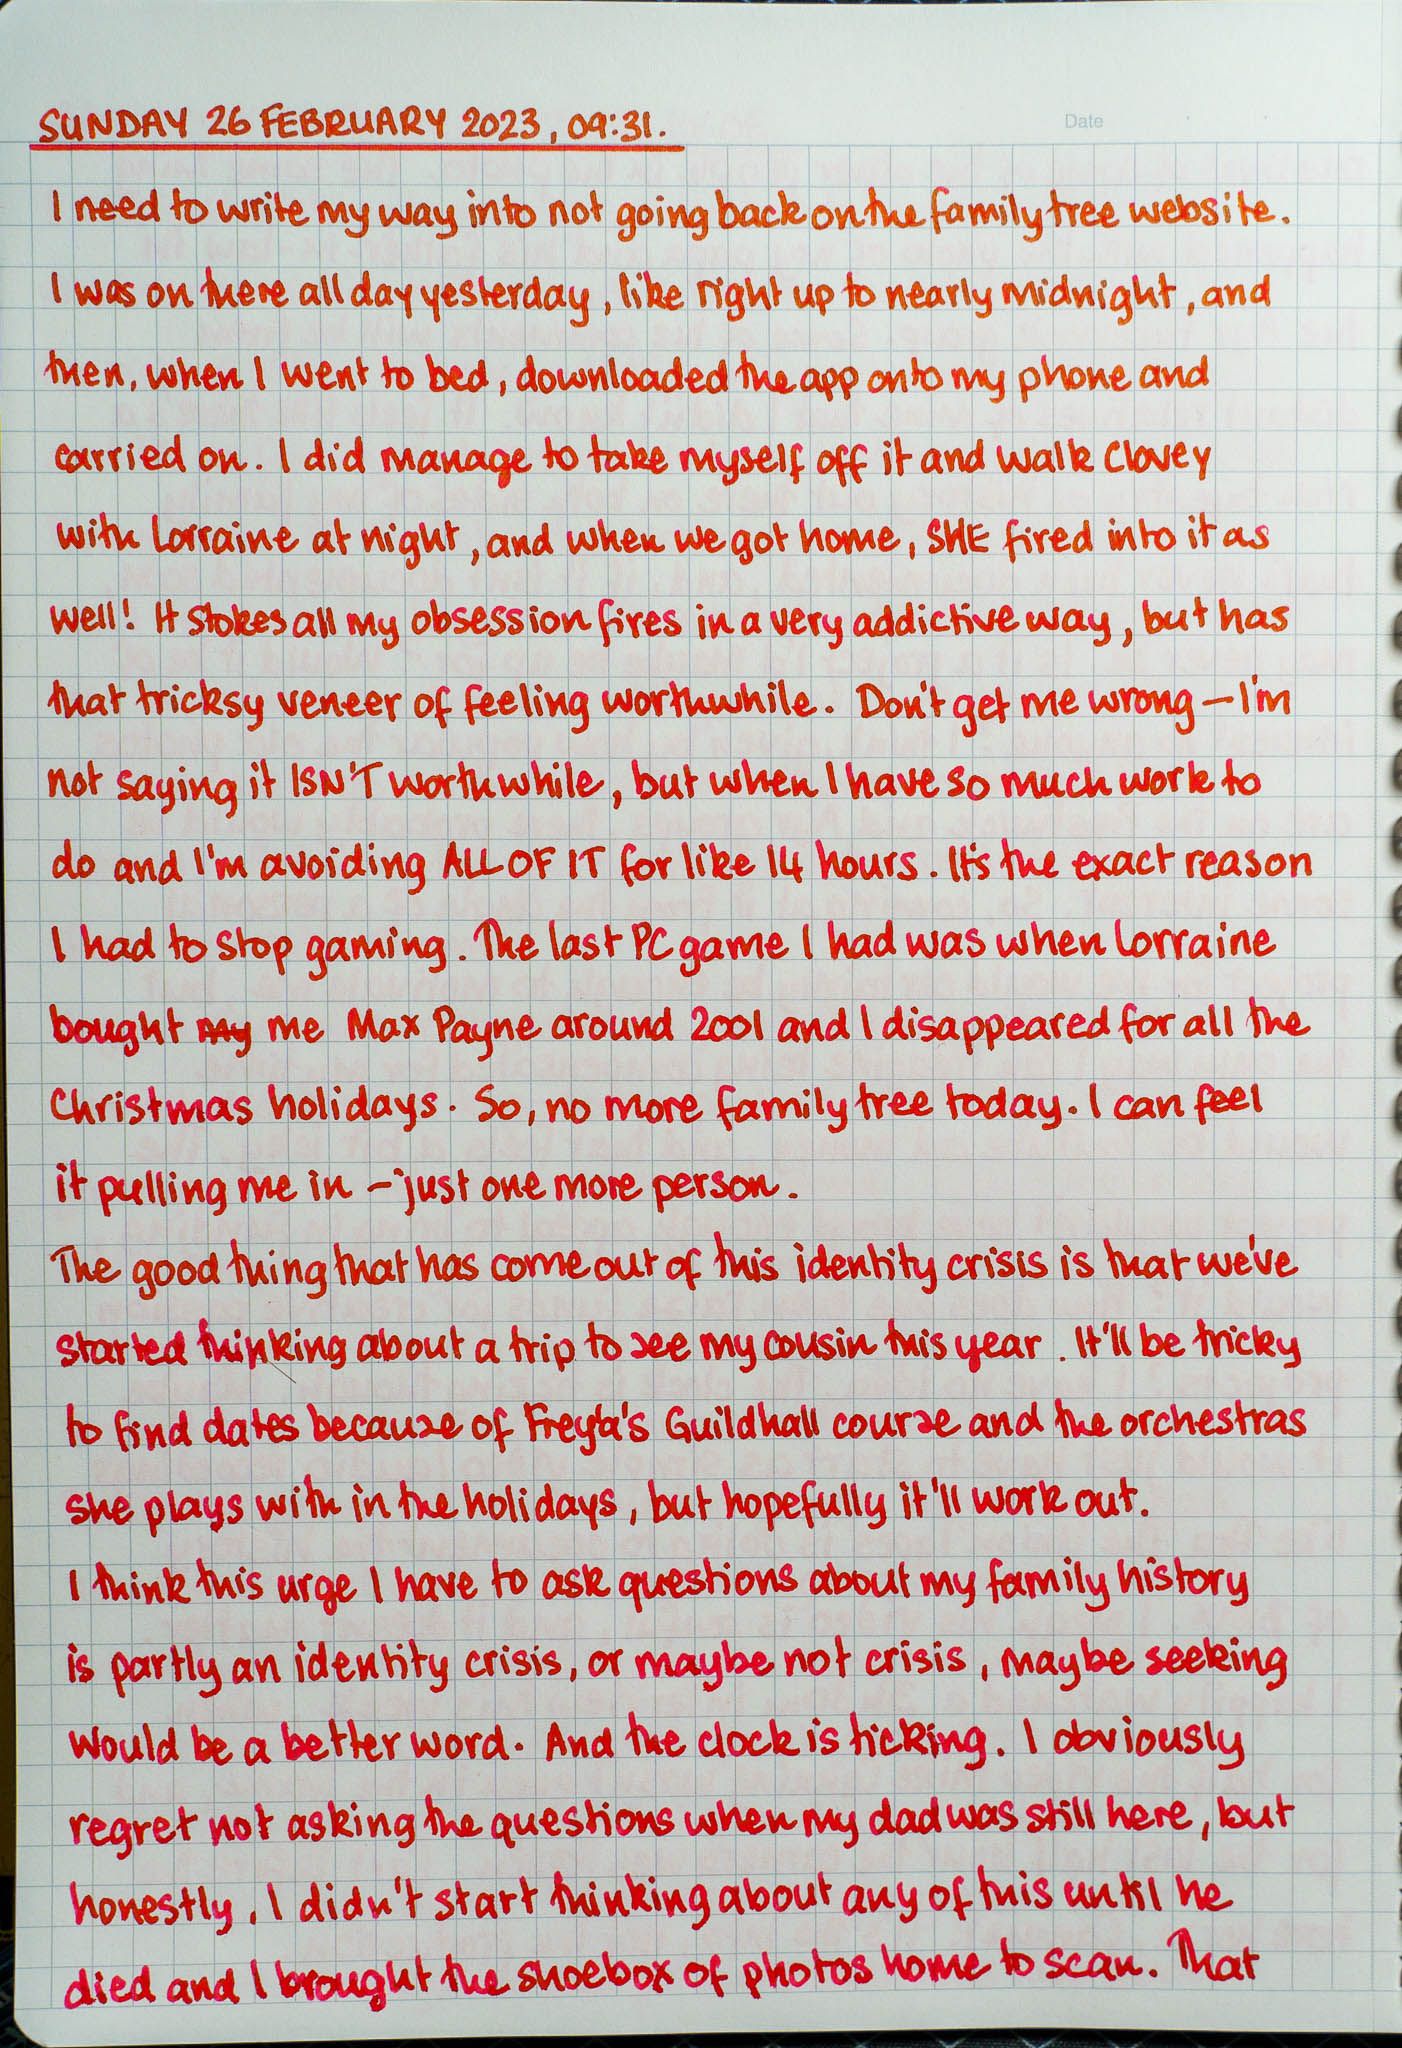 SUNDAY 26 FEBRUARY 2023, 09:31.
Date
I need to write my way into not going back on the family tree website.
I was on there all day yesterday, like right up to nearly midnight, and
then, when I went to bed, downloaded the app onto my phone and
carried on. I did manage to take myself off it and walk Clovey
with Lorraine at night, and when we got home, SHE fired into it as
well! It stokes all my obsession fires in a very addictive way, but has
that tricksy veneer of feeling worthwhile. Don't get me wrong – I'm
not saying it ISN'T worthwhile, but when I have so much work to
do and I'm avoiding ALL OF IT for like 14 hours. It's the exact reason
I had to stop gaming. The last PC game I had was when Lorraine
bought my me Max Payne around 2001 and I disappeared for all the
Christmas holidays. So, no more family tree today. I can feel
it pulling me in – just one more person.
The good thing that has come out of this identity crisis is that we've
started thinking about a trip to see my cousin this year. It'll be tricky
to find dates because of Freya's Guildhall course and the orchestras
she plays with in the holidays, but hopefully it'll work out.
I think this urge I have to ask questions about my family history
is partly an identity crisis, or maybe not crisis, maybe seeking
would be a better word. And the clock is ticking. I obviously
regret not asking the questions when my dad was still here, but
honestly, I didn't start thinking about any of this until he
died and I brought the shoebox of photos home to scan. That